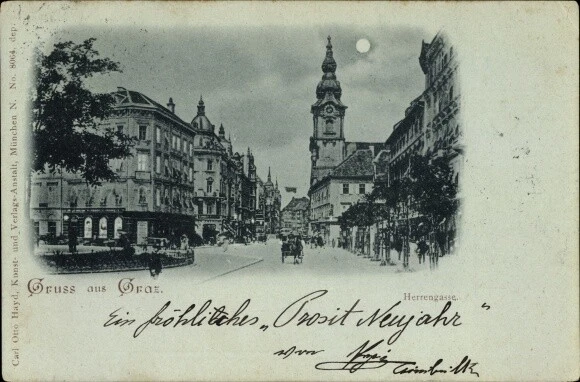 Carl Otto Hayd, Kunst- und Verlags-Anstalt, München N. No. 8064. dep.
Gruss aus Graz.
Herrengasse.
Ein fröhliches „Prosit Neujahr“
von